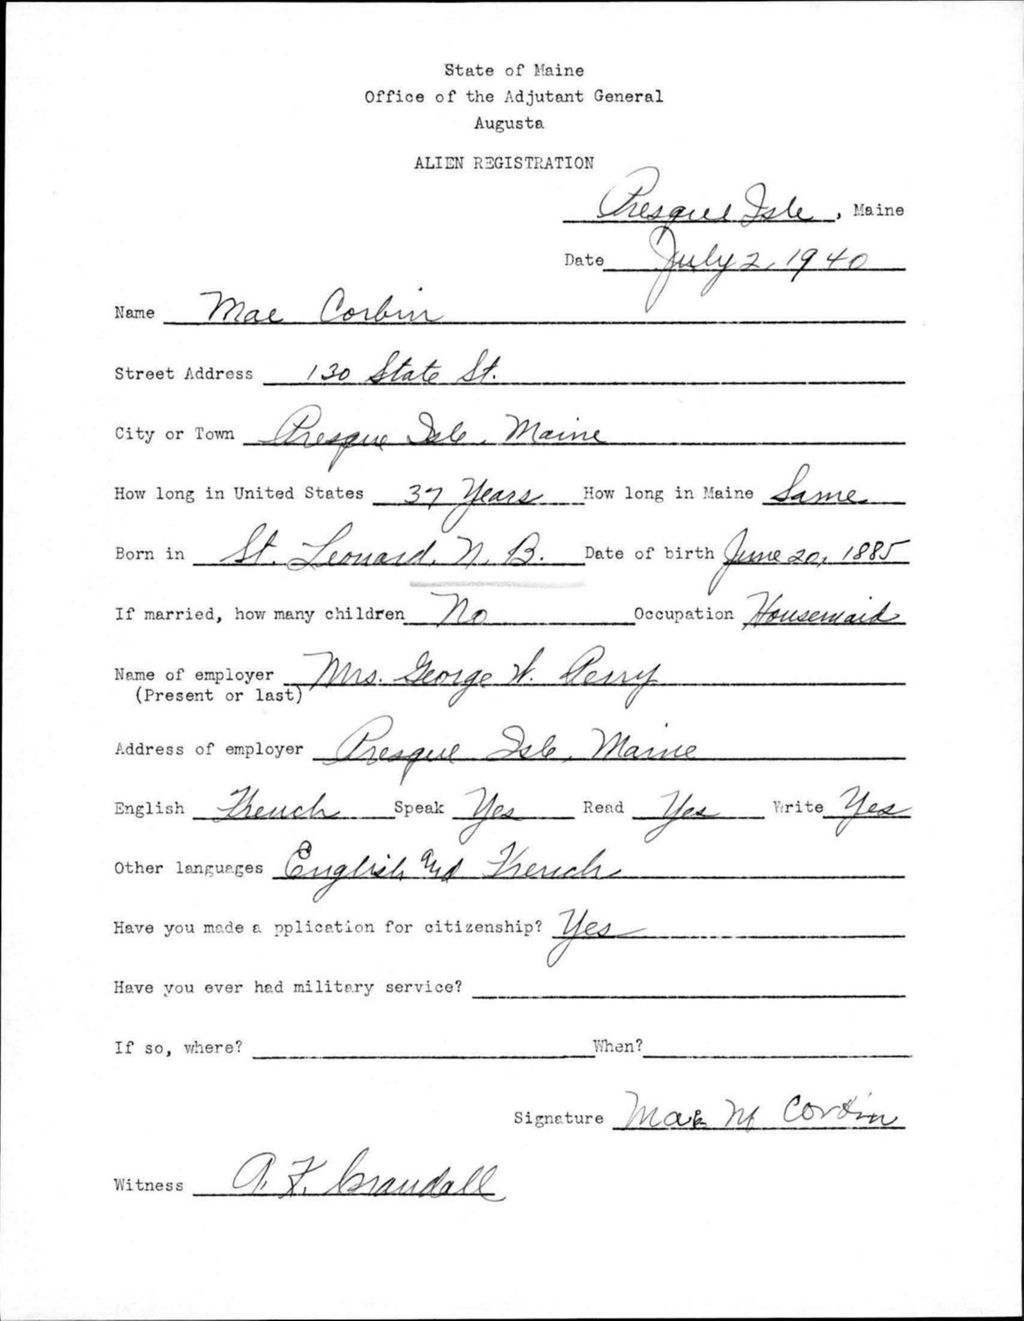 State of Maine
Office of the Adjutant General
Augusta
ALIEN REGISTRATION
Presque Isle, Maine
Date July 2, 1940
Name Mae Corbin
Street Address 130 State St.
City or Town Presque Isle, Maine
How long in United States 37 Years How long in Maine Same
Born in St. Leonard, N. B. Date of birth June 20, 1885
If married, how many children No Occupation Housemaid
Name of employer Mrs. George W. Perry
(Present or last)
Address of employer Presque Isle, Maine
English French Speak Yes Read Yes Write Yes
Other languages English and French
Have you made a pplication for citizenship? Yes
Have you ever had military service?
If so, where? When?
Signature Mae M Corbin
Witness A. F. Crandall